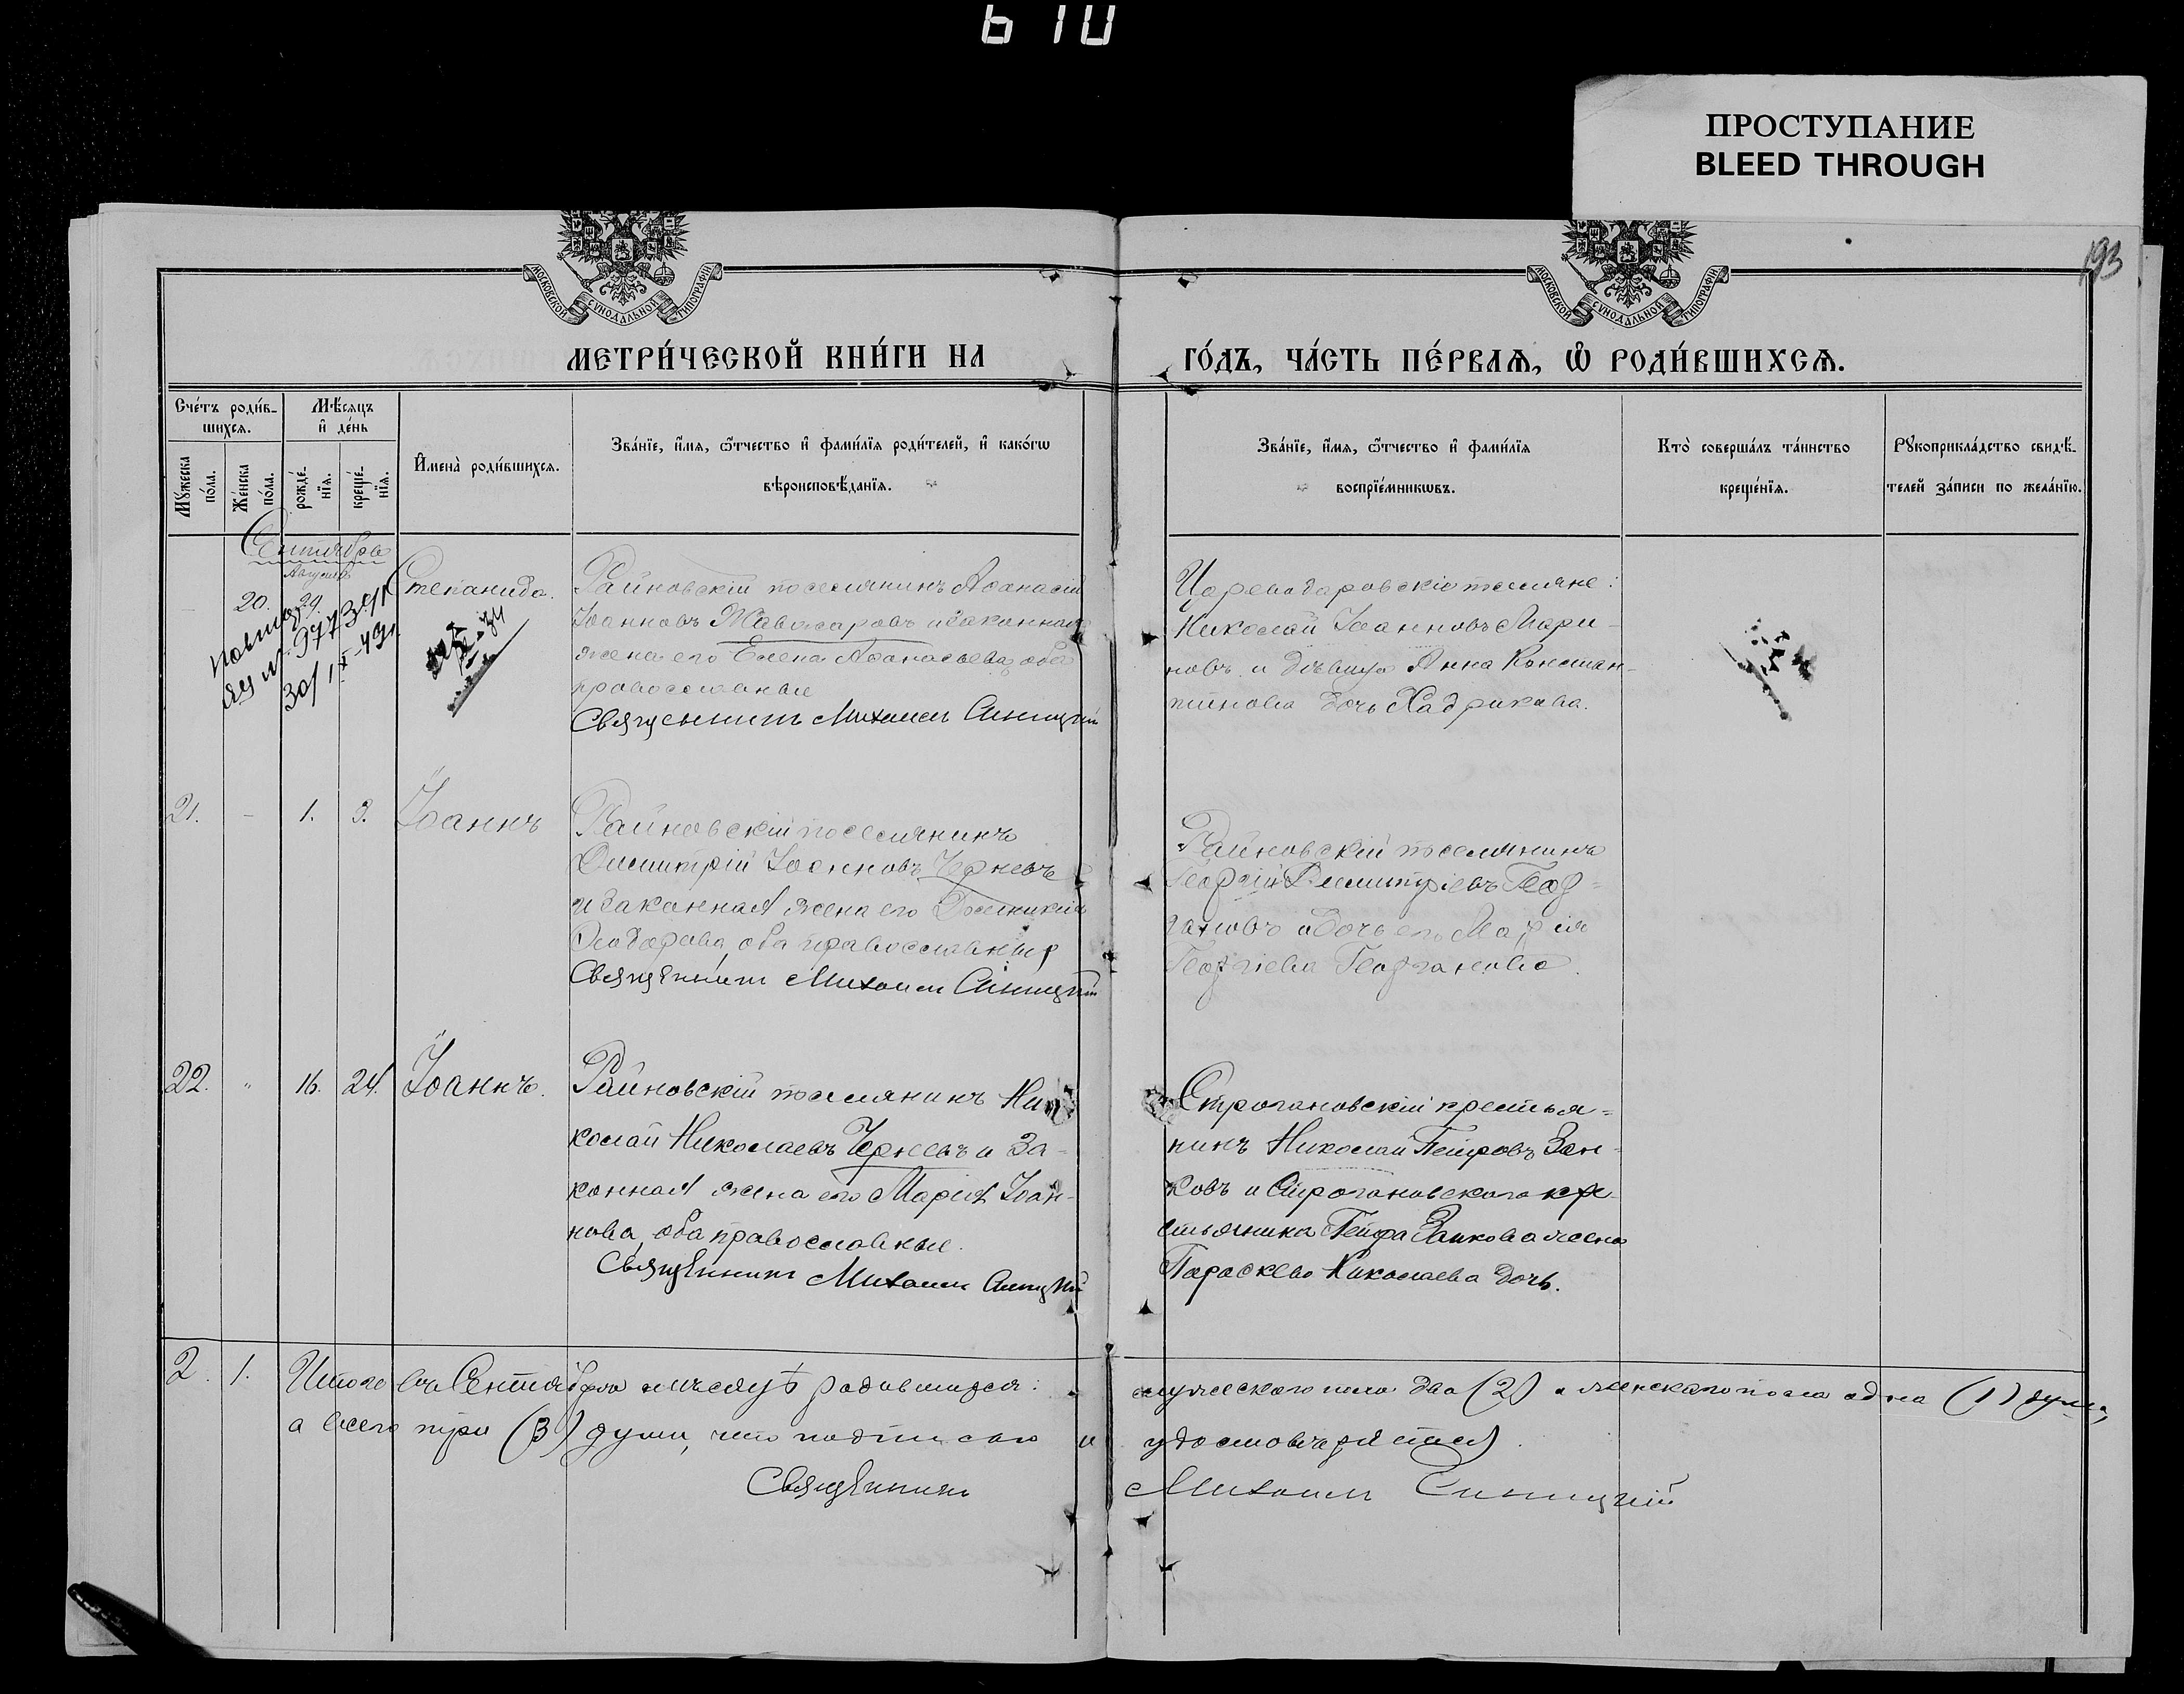 610
ПРОСТУПАНИЕ
BLEED THROUGH
193
МОСКОВСКОЙ СѴНОДАЛЬНОЙ ТИПОГРАФІИ
МОСКОВСКОЙ СѴНОДАЛЬНОЙ ТИПОГРАФІИ
МЕТРИ́ЧЕСКОЙ КНИ́ГИ НА
ГО́ДЪ, ЧА́СТЬ ПЕ́РВАѦ, Ѡ҆ РОДИ́ВШИХСѦ.
Сче́тъ роди́в-
шихсѧ.
Мѣ́сѧцъ
и҆ де́нь
Мꙋ́жеска
по́ла.
Же́нска
по́ла.
рожде́-
нїѧ.
креще́-
нїѧ.
И҆мена̀ роди́вшихсѧ.
Зва́нїе, и҆́мѧ, ѻ҆́тчество и҆ фами́лїѧ роди́телей, и҆ како́гѡ
вѣроисповѣ́данїѧ.
Зва́нїе, и҆́мѧ, ѻ҆́тчество и҆ фами́лїѧ
воспрїе́мникѡвъ.
Кто̀ соверша́лъ та́инство
креще́нїѧ.
Рꙋкоприкла́дство свидѣ́-
телей за́писи по жела́нїю.
Сентябрь
Августъ
20. 29.
Степанида.
Райновскій поселянинъ Аѳанасій
Іоанновъ и законная
жена его Елена Аѳанасьева, оба
православные
Священникъ Михаилъ Синицкій
Цареводаровскіе поселяне:
Николай Іоанновъ Мари-
новъ и дѣвица Анна Констан-
тинова дочь Хадрикова.
21. - 1. 3. Іоаннъ
Райновскій поселянинъ
Димитрій Іоанновъ Черневъ
и законная жена его Домникія
Ѳеодорова, оба православные
Священникъ Михаилъ Синицкій
Райновскій поселянинъ
Георгій Димитріевъ Геор-
гановъ и дочь его Марія
Георгіева Георганова.
22. " 16. 24. Іоаннъ.
Райновскій поселянинъ Ни-
колай Николаевъ Черневъ и за-
конная жена его Марія Іоан-
нова, оба православные.
Священникъ Михаилъ Синицкій
Строгановскій крестья=
нинъ Николай Петровъ Зан-
ковъ и Строгановскаго кре-
стьянина Петра Занкова жена
Параскева Николаева дочь.
2. 1. Итого въ Сентябрѣ мѣсяцѣ родившихся: мужескаго пола два (2) и женскаго пола одна (1) душа,
а всего три (3) души, что подписью и удостовѣряется.
Священникъ Михаилъ Синицкій